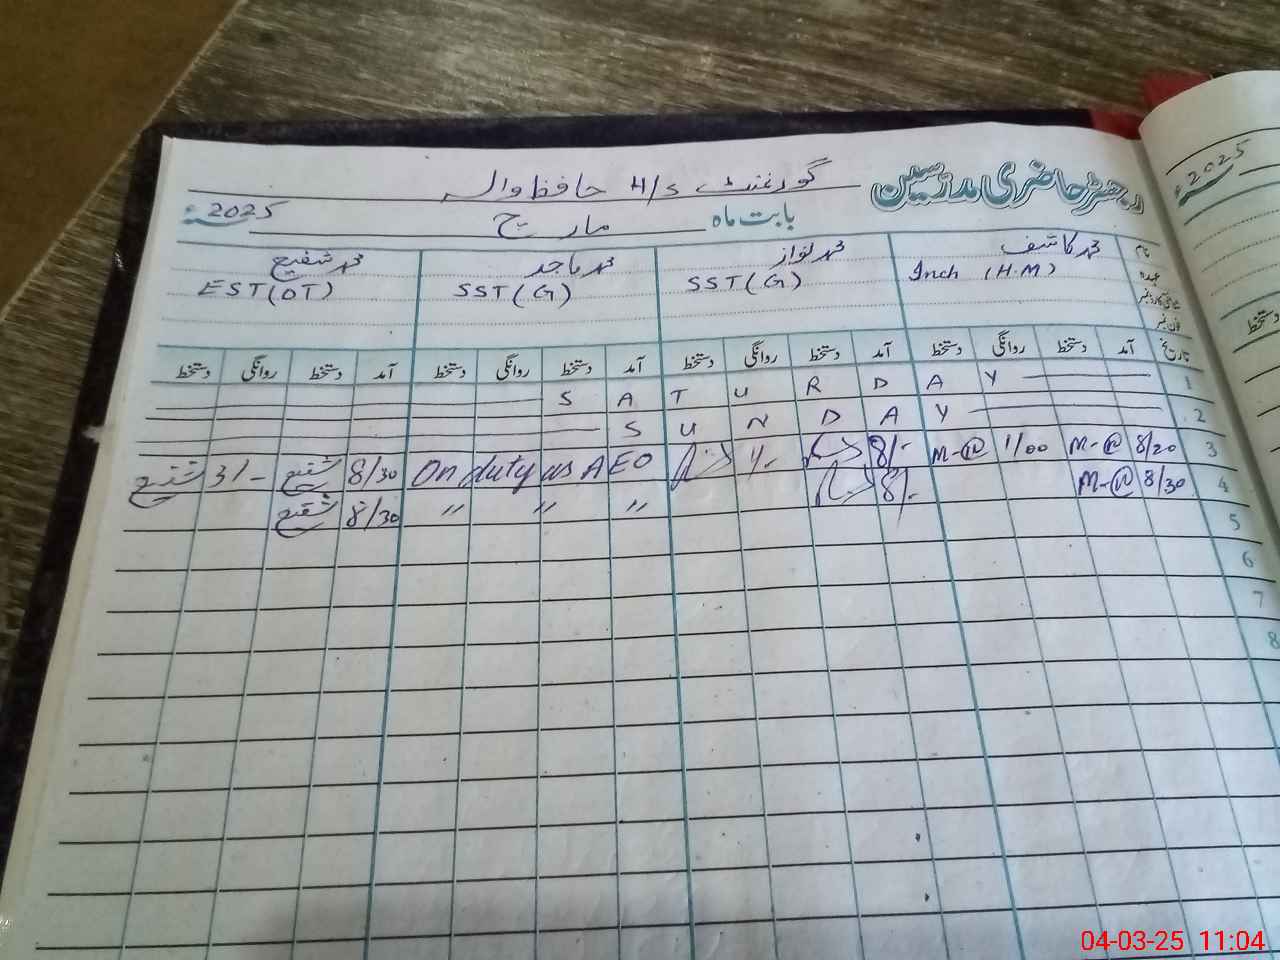 رجسٹر حاضری مدرسین گورنمنٹ H/S حافظ والہ
بابت ماہ مارچ 2025ء
نام محمد کاشف محمد نواز محمد ماجد محمد شفیع
عہدہ Inch (H.M) SST (G) SST (G) EST (DT)
فون نمبر
تاریخ آمد دستخط روانگی دستخط آمد دستخط روانگی دستخط آمد دستخط روانگی دستخط آمد دستخط روانگی دستخط
1 S A T U R D A Y
2 S U N D A Y
3 8/20 M-@ 1/00 M-@ 8/- 1/- On duty as AEO 8/30 شفیع 3/- شفیع
4 8/30 M-@ 8/- " " " 8/30 شفیع
5
6
7
8
2025ء
دستخط
04-03-25 11:04